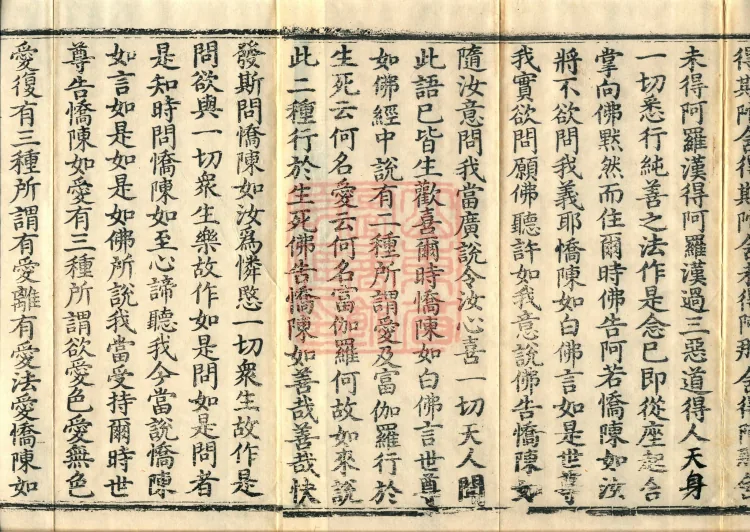 未得阿羅漢得阿羅漢過三惡道得人天身
一切悉行純善之法作是念已即從座起合
掌向佛黙然而住爾時佛告阿若憍陳如汝
將不欲問我義耶憍陳如白佛言如是世尊
我實欲問願佛聽許如我意說佛告憍陳如
隨汝意問我當廣說令汝心喜一切天人聞
此語已皆生歡喜爾時憍陳如白佛言世尊
如佛經中說有二種所謂愛及富伽羅行於
生死云何名愛云何名富伽羅何故如來說
此二種行於生死佛告憍陳如善哉善哉快
發斯問憍陳如汝爲憐愍一切衆生故作是
問欲與一切衆生樂故作如是問如是問者
是知時問憍陳如至心諦聽我今當說憍陳
如言如是如是如佛所說我當受持爾時世
尊告憍陳如愛有三種所謂欲愛色愛無色
愛復有三種所謂有愛離有愛法愛憍陳如